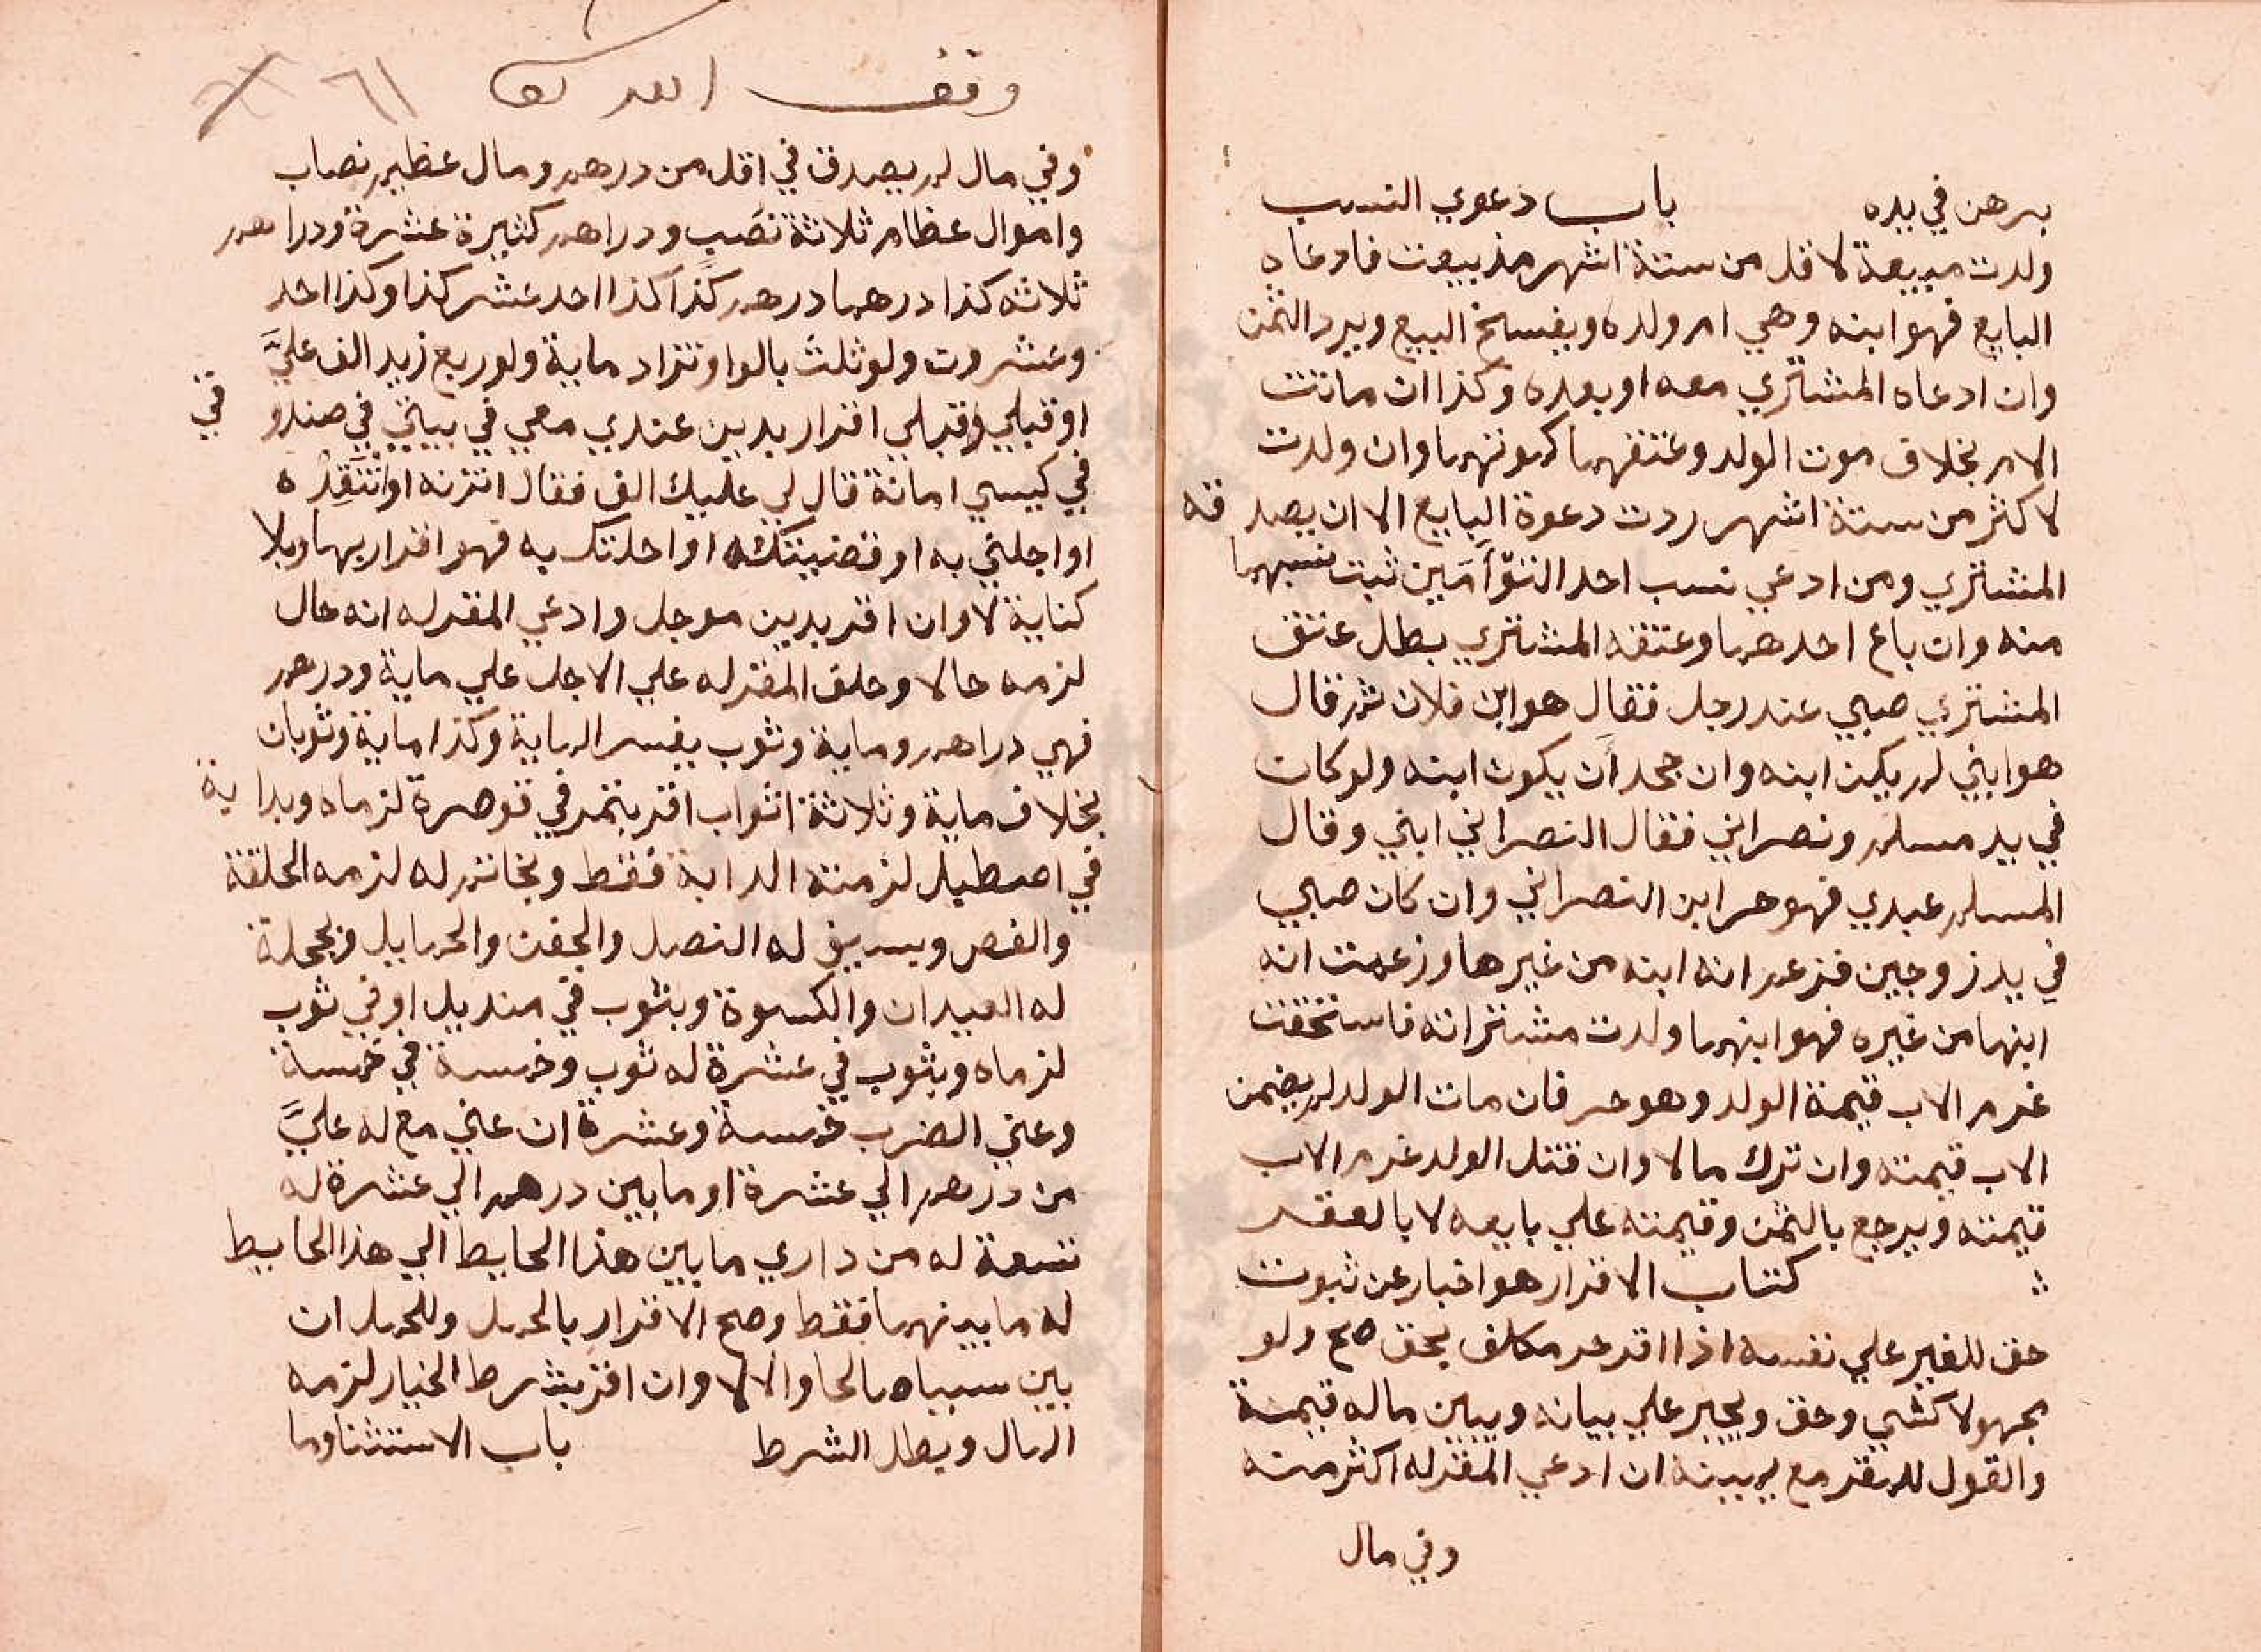 برهن في يده باب دعوي النسب
ولدت مبيعة لاقل من ستة اشهر مذ بيعت فادعاه
البايع فهو ابنه وهي ام ولده ويفسخ البيع ويرد الثمن
وان ادعاه المشتري معه او بعده وكذا ان ماتت
الام بخلاف موت الولد وعتقهما كموتهما وان ولدت
لاكثر من ستة اشهر ردت دعوة البايع الا ان يصدقه
المشتري ومن ادعي نسب احد التوأمين ثبت نسبهما
منه وان باع احدهما وعتقه المشتري بطل عتق
المشتري صبي عند رجل فقال هو ابن فلان ثم قال
هو ابني لم يكن ابنه وان جحد أن يكون ابنه ولو كان
في يد مسلم ونصراني فقال النصراني ابني وقال
المسلم عبدي فهو حر ابن النصراني وان كان صبي
في يد زوجين فزعم انه ابنه من غيرها وزعمت انه
ابنها من غيره فهو ابنهما ولدت مشتراته فاستحقت
غرم الاب قيمة الولد وهو حر فان مات الولد لم يضمن
الاب قيمته وان ترك مالا وان قتل الولد غرم الاب
قيمته ويرجع بالثمن وقيمته علي بايعه لا بالعقر
كتاب الاقرار هو اخبار عن ثبوت
حق للغير علي نفسه اذا اقر حر مكلف بحق صح ولو
مجهولا كشي وحق ويجبر علي بيانه ويبين ماله قيمة
والقول للمقر مع يمينه ان ادعي المقر له اكثر منه
وفي مال
وقف الله تعا
٦١
وفي مال لم يصدق في اقل من درهم ومال عظيم نصاب
واموال عظام ثلاثة نصب ودراهم كثيرة عشرة ودراهم
ثلاثه كذا درهما درهم كذا كذا احد عشر كذا وكذا احد
وعشرون ولو ثلث بالواو تزاد ماية ولو ربع زيد الف عليّ
او قبلي اقرار بدين عندي معي في بيتي في صندوقي
في كيسي امانة قال لي عليك الف فقال اتزنه او انتقده
او اجلني به او قضيتكه او احلتك به فهو اقرار بها وبلا
كناية لا وان اقر بدين موجل وادعي المقر له انه حال
لزمه حالا وحلف المقر له علي الاجل علي ماية ودرهم
فهي دراهم وماية وثوب يفسر الماية وكذا ماية وثوبان
بخلاف ماية وثلاثة اثواب اقر بتمر في قوصرة لزماه وبداية
في اصطبل لزمته الدابة فقط وبخاتم له لزمه الحلقة
والفص وبسيف له النصل والجفن والحمايل وبحجلة
له العيدان والكسوة وبثوب في منديل او في ثوب
لزماه وبثوب في عشرة له ثوب وخمسة في خمسة
وعني الضرب خمسة وعشرة ان عني مع له عليّ
من درهم الي عشرة او ما بين درهم الي عشرة له
تسعة له من داري ما بين هذا الحايط الي هذا الحايط
له ما بينهما فقط وصح الاقرار بالحمل وللحمل ان
بين سببا صالحا والا لا وان اقر بشرط الخيار لزمه
المال وبطل الشرط باب الاستثنا وما